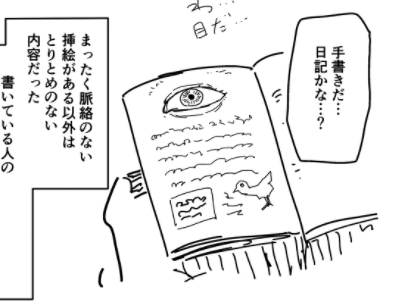 わ…
目だ…
手書きだ…
日記かな…？
まったく脈絡のない
挿絵がある以外は
とりとめのない
内容だった
書いている人の